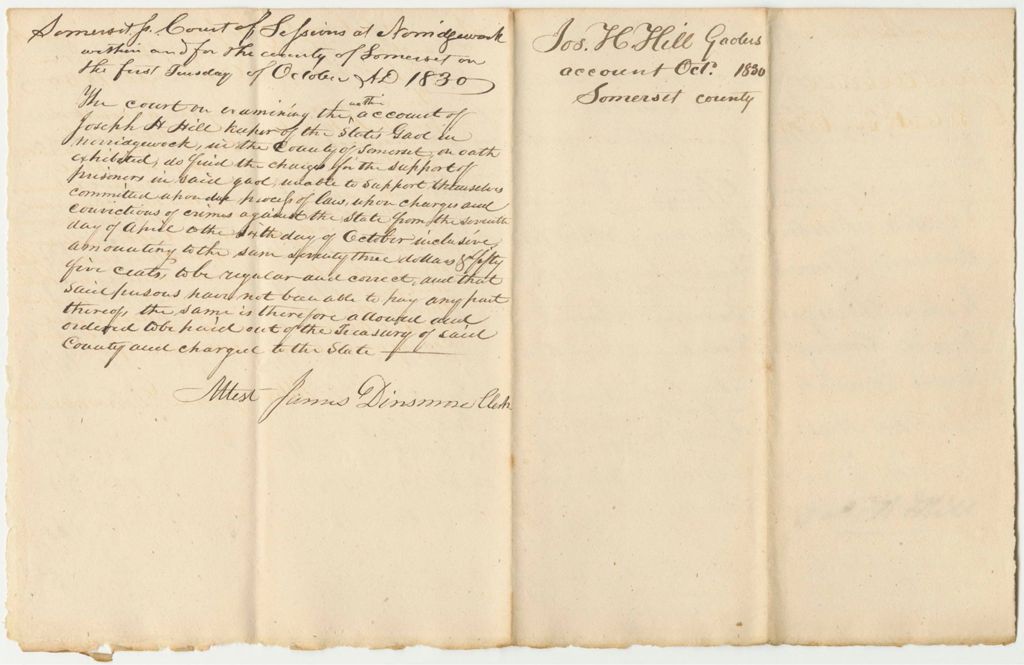 Somerset ss. Court of Sessions at Norridgewock
within and for the county of Somerset on
the first Tuesday of October AD 1830
The court on examining the within account of
Joseph H Hill keeper of the State's Gaol in
Norridgewock, in the County of Somerset, on oath
exhibited, do find the charges for the support of
prisoners in said gaol, unable to support themselves
committed upon due process of law, upon charges and
convictions of crimes against the State from the seventh
day of April to the sixth day of October inclusive,
amounting to the sum seventy three dollars & fifty
five cents, to be regular and correct, and that
said persons have not been able to pay any part
thereof, the same is therefore allowed and
ordered to be paid out of the Treasury of said
County and charged to the State
Attest James Dinsmore Clerk
Jos. H Hill Gaolers
account Oct. 1830
Somerset county